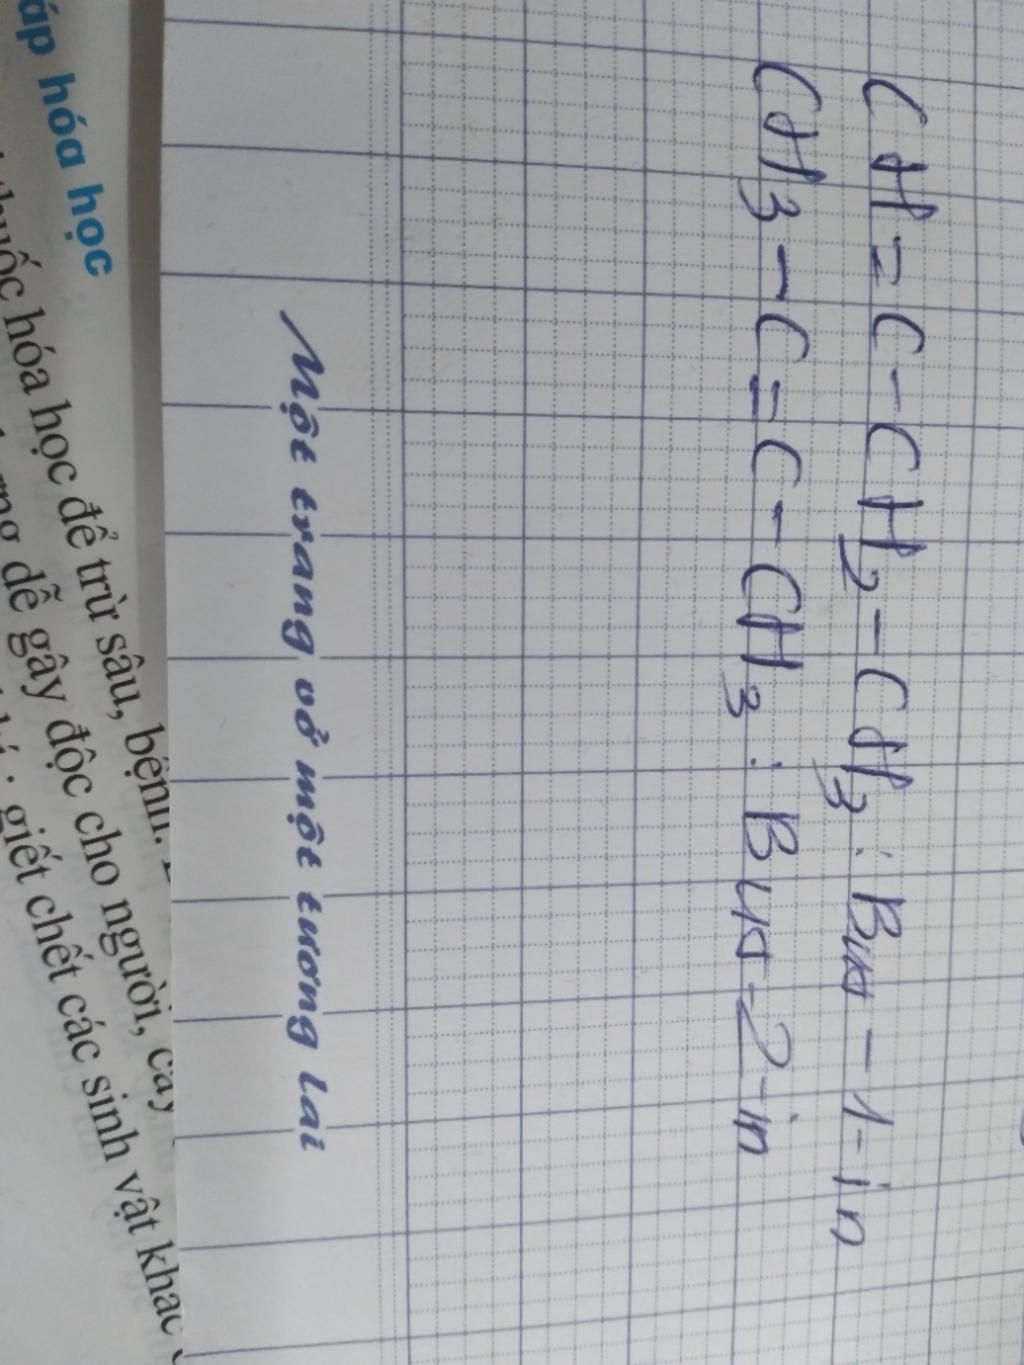 CH = C - CH2 - CH3 : But - 1 - in
CH3 - C = C - CH3 : But - 2 - in
Một trang vở một tương lai
áp hóa học
thuốc hóa học để trừ sâu, bệnh.
dễ gây độc cho người, cây
giết chết các sinh vật khác